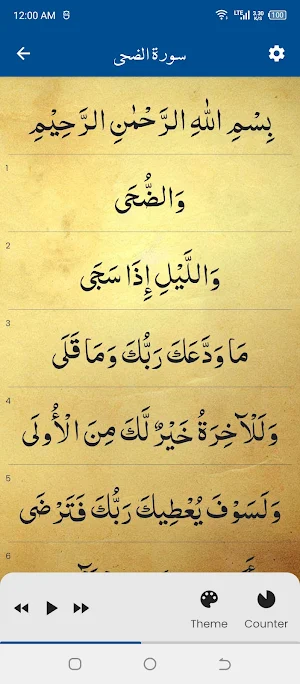 12:00 AM LTE 2.30 K/S 100
سورة الضحى
بِسْمِ اللّٰهِ الرَّحْمٰنِ الرَّحِيْمِ
1
وَالضُّحَى
2
وَاللَّيْلِ إِذَا سَجَى
3
مَا وَدَّعَكَ رَبُّكَ وَمَا قَلَى
4
وَلَلْآخِرَةُ خَيْرٌ لَّكَ مِنَ الْأُولَى
5
وَلَسَوْفَ يُعْطِيكَ رَبُّكَ فَتَرْضَى
6
Theme Counter